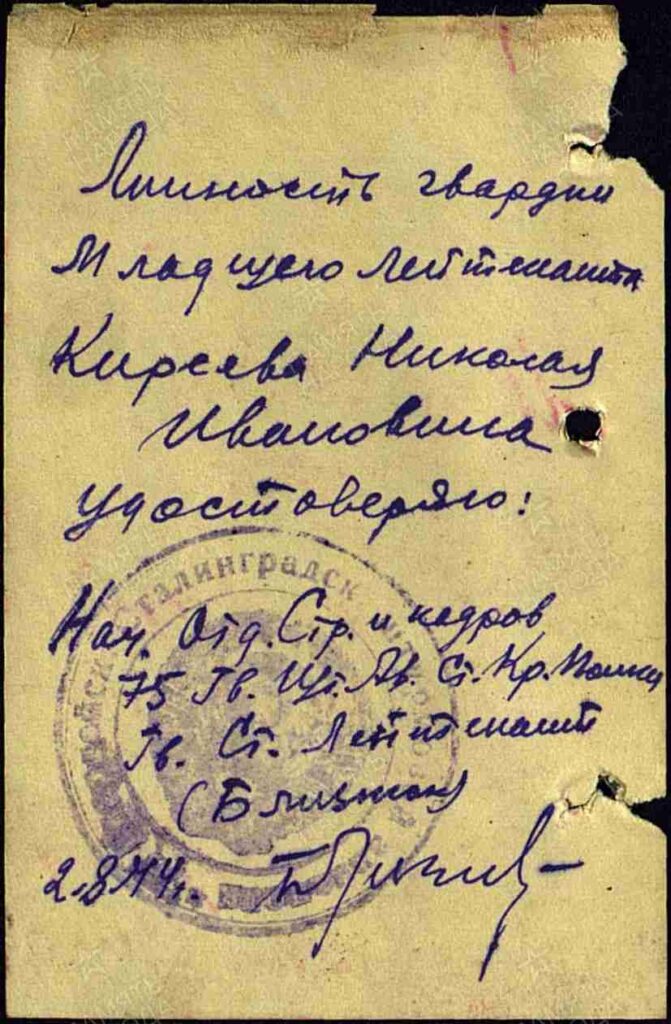 Личность гвардии
Младшего Лейтенанта
Киреева Николая
Ивановича
удостоверяю:
Сталинградск
Нач. Отд. Стр. и кадров
75 Гв. Шт. Ав. Ст. Кр. Полка
Гв. Ст. Лейтенант
2.8.44г.